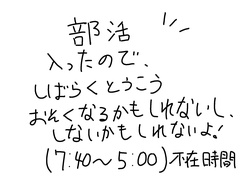 部活
入ったので、
しばらくとうこう
おそくなるかもしれないし、
しないかもしれないよ!
(7:40〜5:00)不在時間